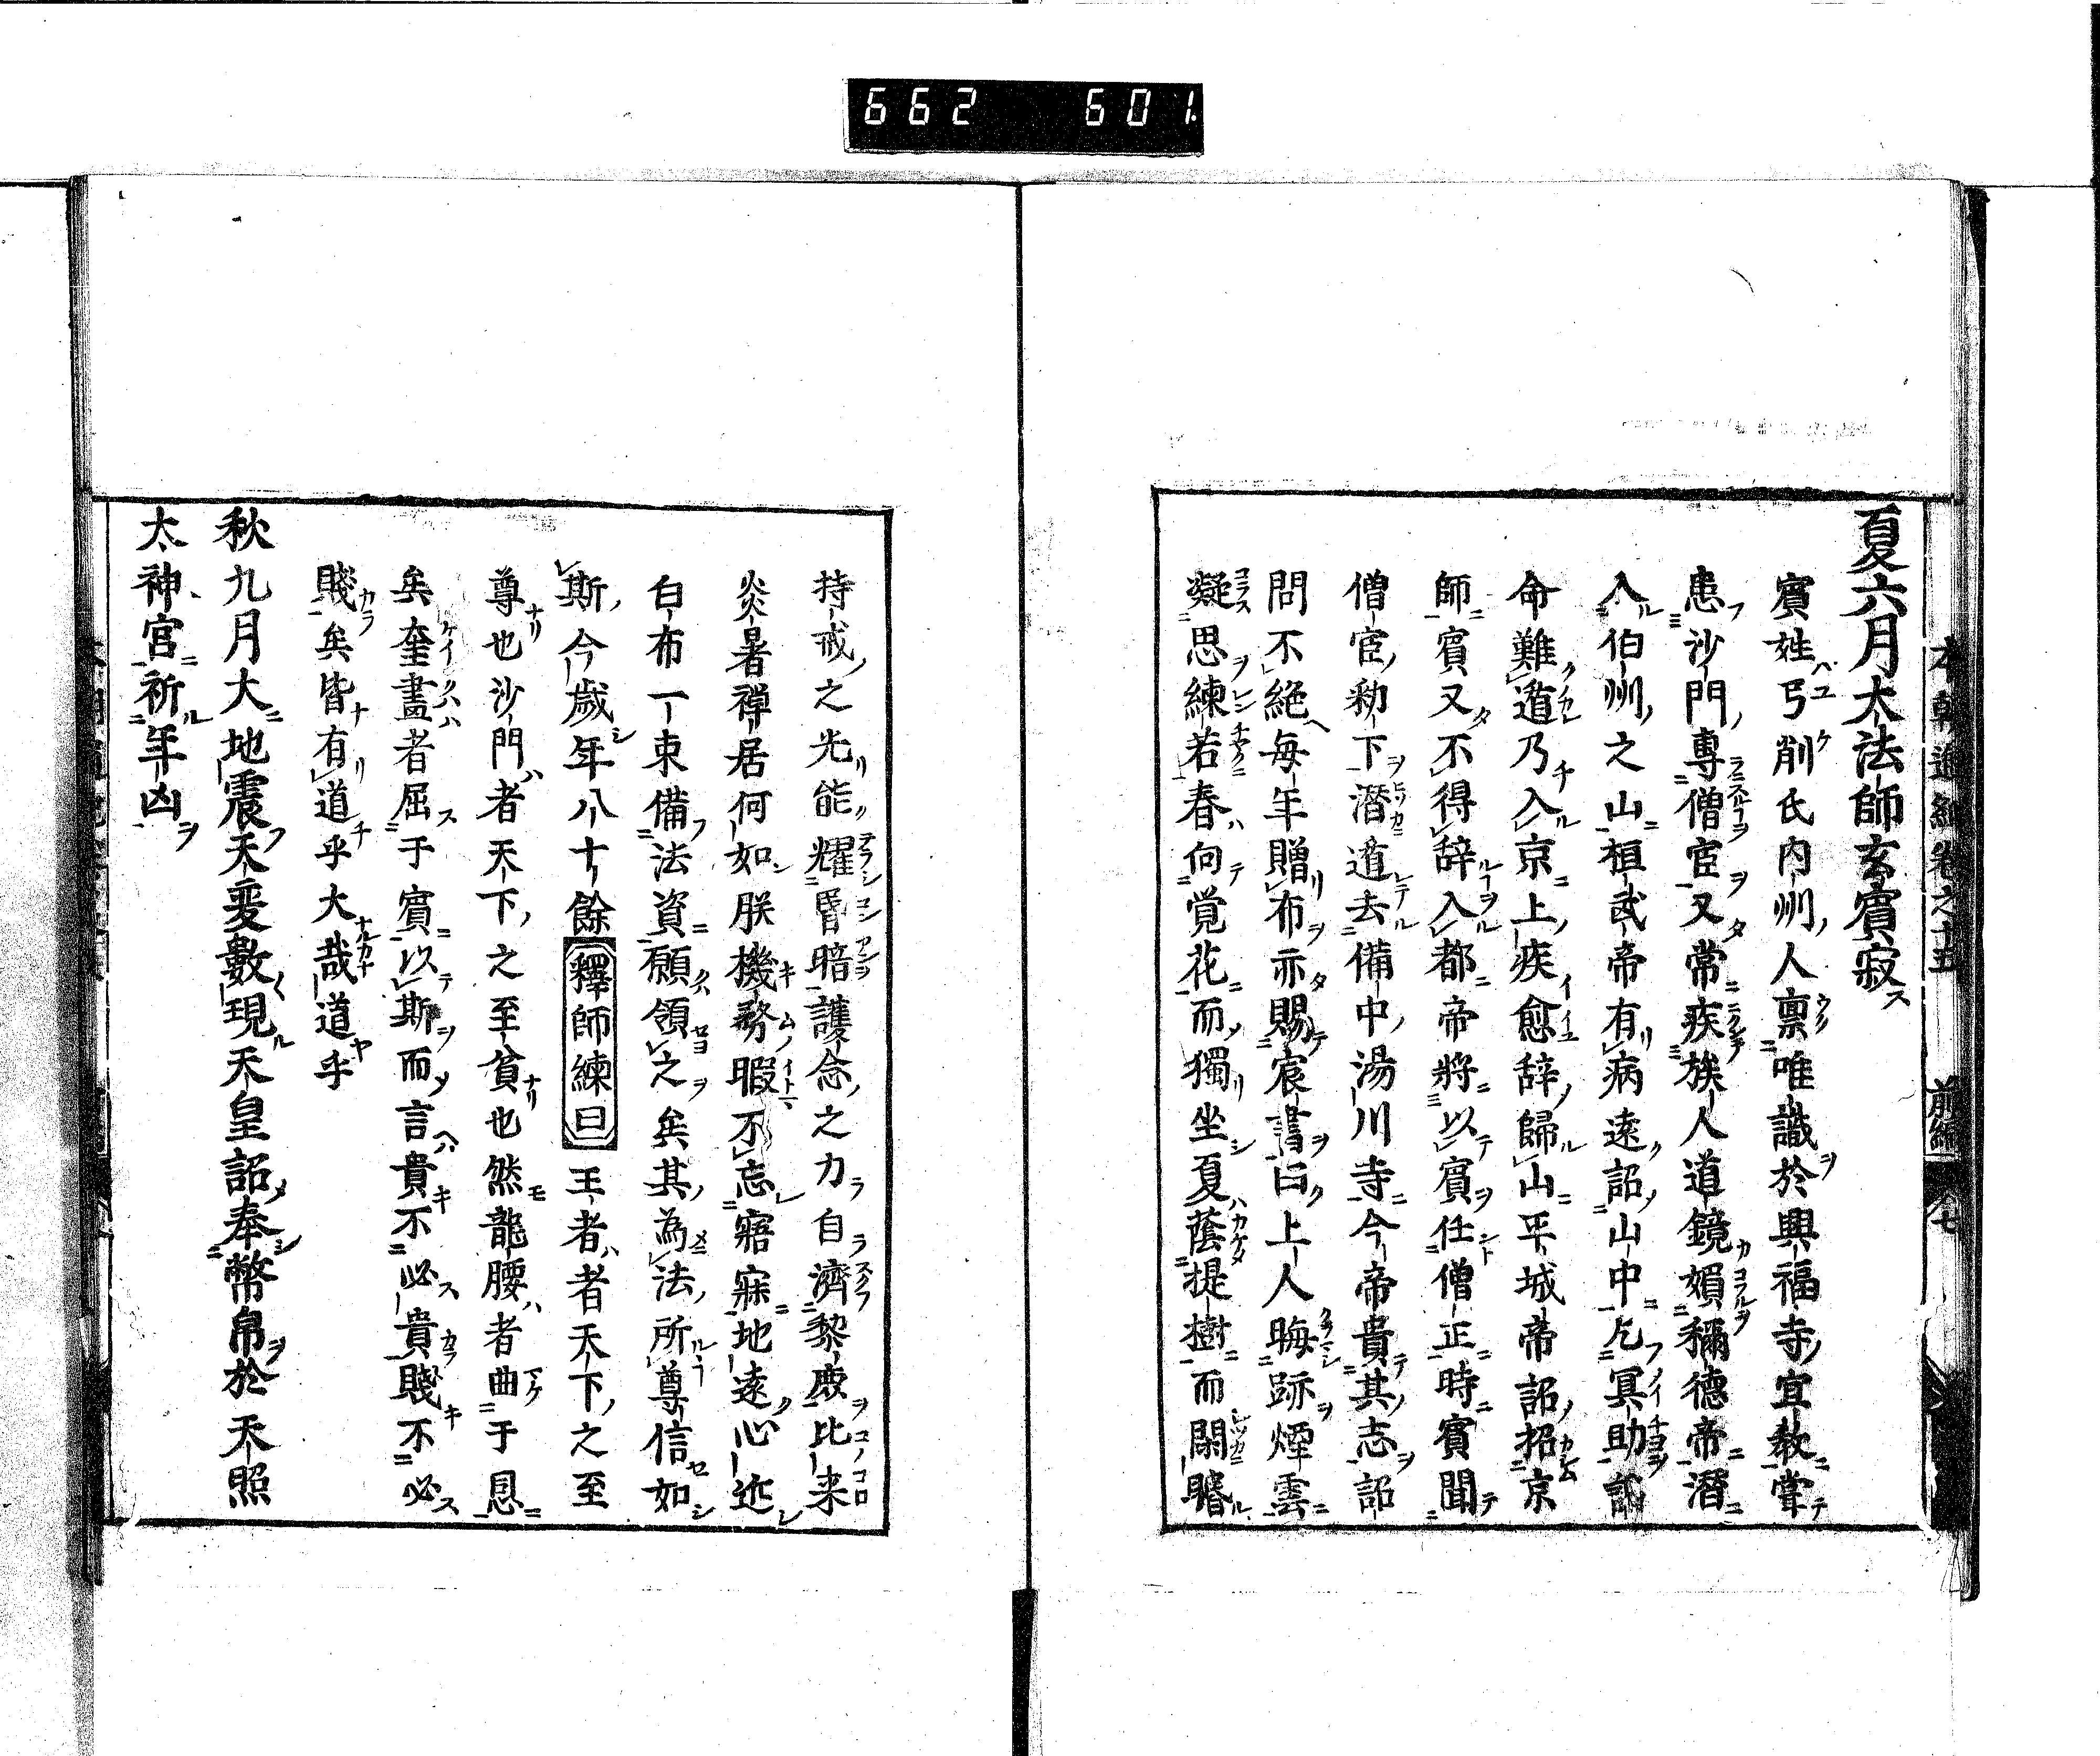 662 601
本朝通紀卷之十五 前編 八 七
夏六月大法師玄賓寂ス
賓姓弓削氏内州人禀唯識於興福寺宜教嘗
患沙門專僧宦又常疾族人道鏡媚稱德帝潛
入伯州之山桓武帝有病遠詔山中乞冥助詔
命難道乃入京上疾愈辞歸山平城帝詔招京
師賓又不得辞入都帝將以賓任僧正時賓聞
僧宦勅下潛遁去備中湯川寺今帝貴其志詔
問不絶毎年贈布亦賜宸書曰上人晦跡煙雲
凝思練若春向覚花而獨坐夏蔭提樹而閑睠
持戒之光能耀昏暗護念之力自濟黎庶比来
炎暑禅居何如朕機務暇不忘寤寐地遠心近
白布一束備法資願領之矣其為法所尊信如
斯今歳年八十餘釋師練曰王者者天下之至
尊也沙門者天下之至貧也然龍腰者曲于恩
矣奎畫者屈于賓以斯而言貴不必貴賤不必
賤矣皆有道乎大哉道乎
秋九月大地震天変數現天皇詔奉幣帛於天照
太神宮祈年凶